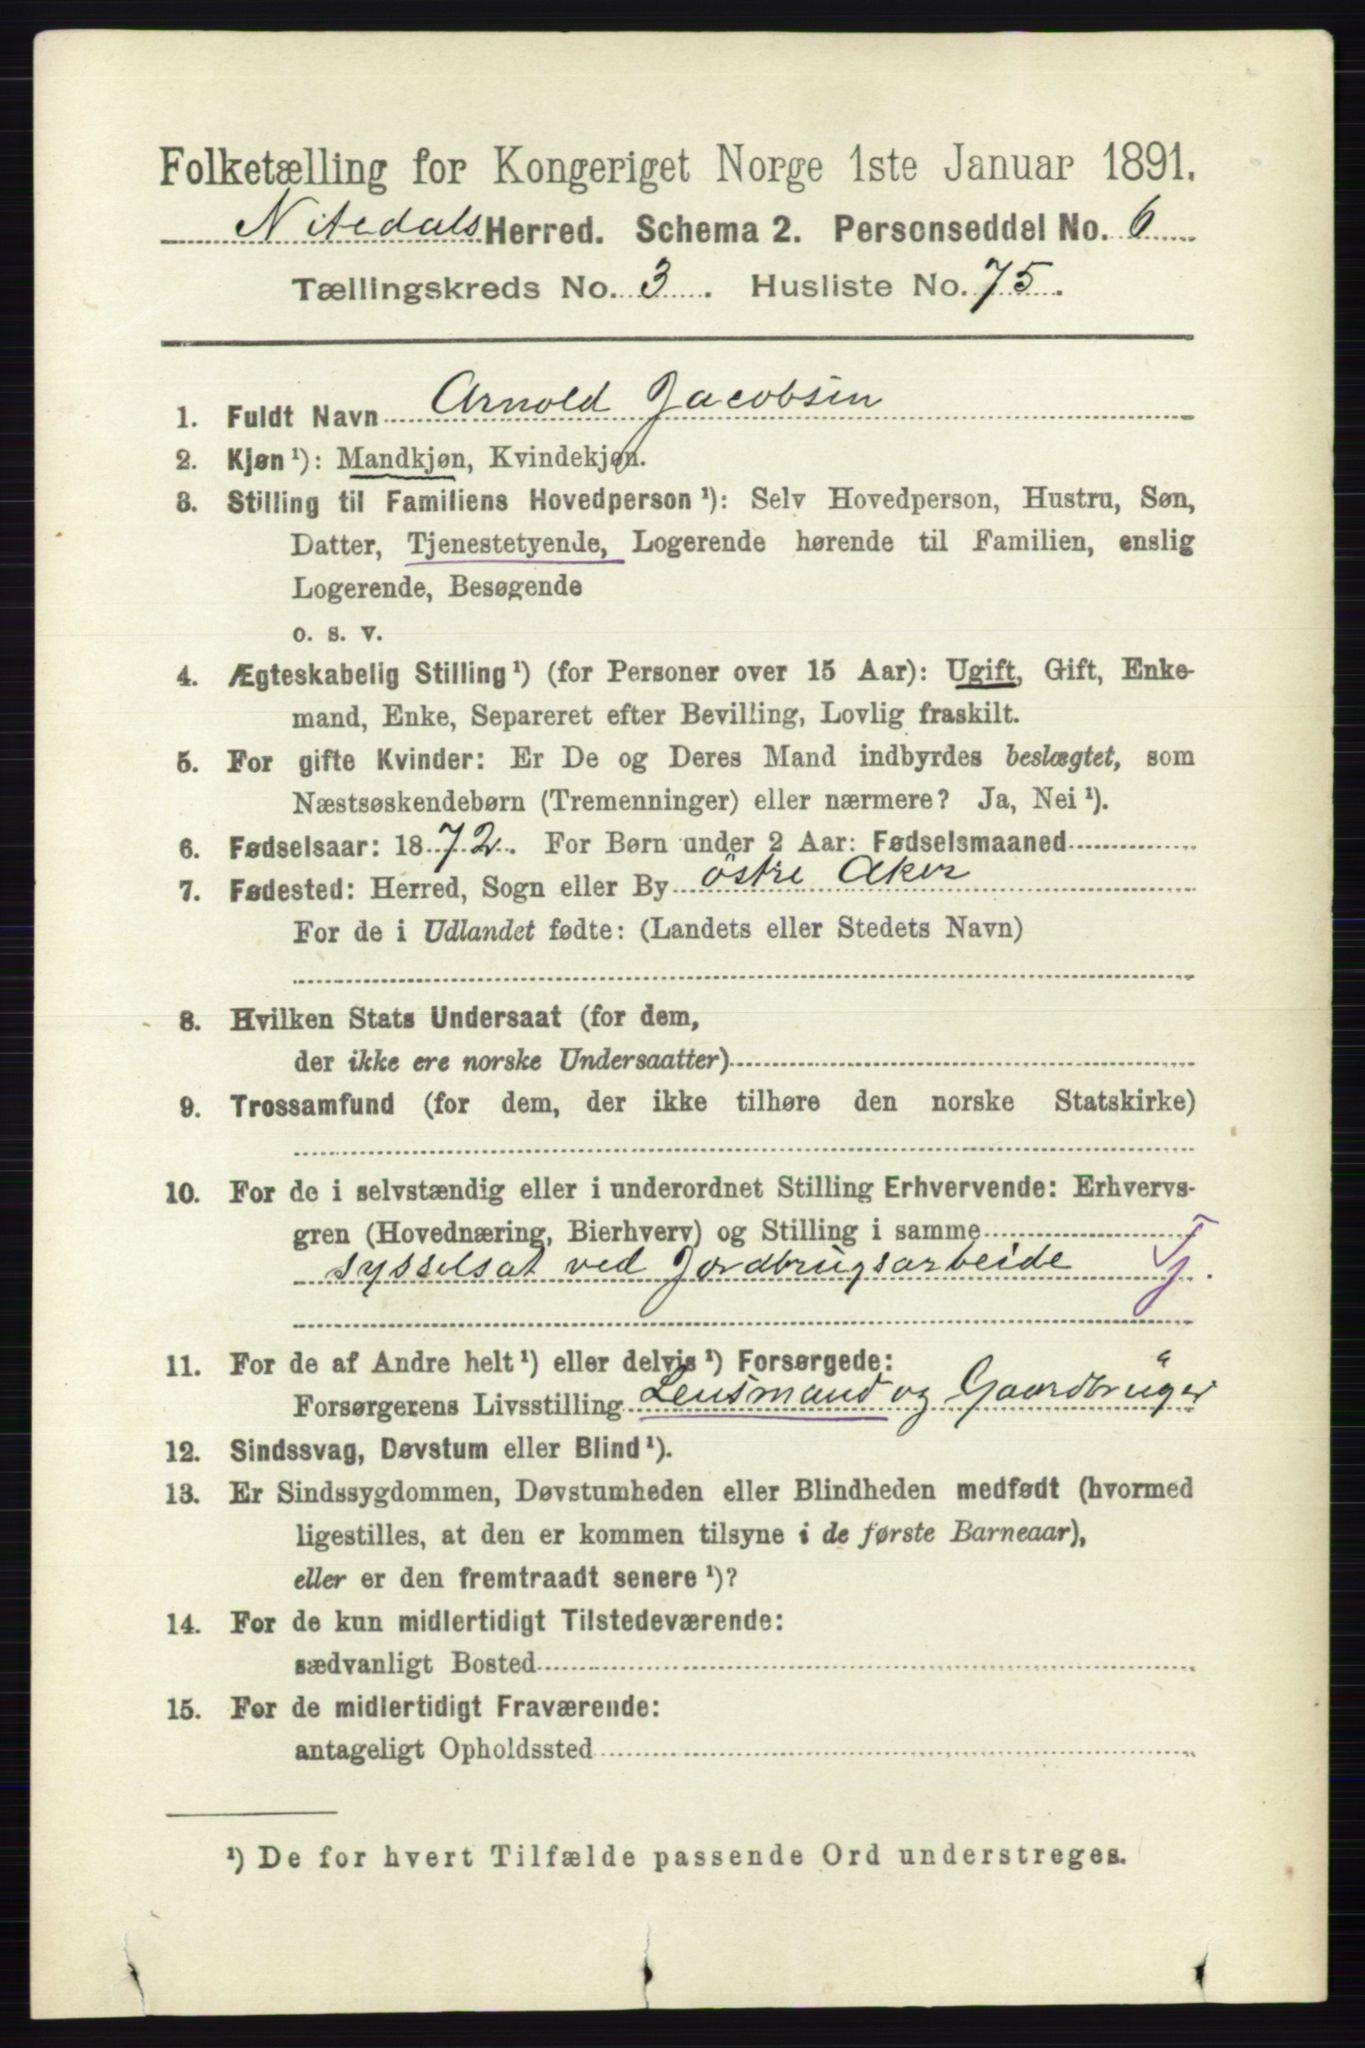 Folketælling for Kongeriget Norge 1ste Januar 1891.
Nitedals Herred. Schema 2. Personseddel No. 6
Tællingskreds No. 3. Husliste No. 75.
1. Fuldt Navn Arnold Jacobsen
2. Kjøn ¹): Mandkjøn, Kvindekjøn.
3. Stilling til Familiens Hovedperson ¹): Selv Hovedperson, Hustru, Søn,
Datter, Tjenestetyende, Logerende hørende til Familien, enslig
Logerende, Besøgende
o. s. v.
4. Ægteskabelig Stilling ¹) (for Personer over 15 Aar): Ugift, Gift, Enke-
mand, Enke, Separeret efter Bevilling, Lovlig fraskilt.
5. For gifte Kvinder: Er De og Deres Mand indbyrdes beslægtet, som
Næstsøskendebørn (Tremenninger) eller nærmere? Ja, Nei ¹).
6. Fødselsaar: 1872. For Børn under 2 Aar: Fødselsmaaned
7. Fødested: Herred, Sogn eller By östre Aker
For de i Udlandet fødte: (Landets eller Stedets Navn)
8. Hvilken Stats Undersaat (for dem,
der ikke ere norske Undersaatter)
9. Trossamfund (for dem, der ikke tilhøre den norske Statskirke)
10. For de i selvstændig eller i underordnet Stilling Erhvervende: Erhvervs-
gren (Hovednæring, Bierhverv) og Stilling i samme
sysselsat ved Jordbrugsarbeide Tj.
11. For de af Andre helt ¹) eller delvis ¹) Forsørgede:
Forsørgerens Livsstilling Lensmand og Gaardbruger
12. Sindssvag, Døvstum eller Blind ¹).
13. Er Sindssygdommen, Døvstumheden eller Blindheden medfødt (hvormed
ligestilles, at den er kommen tilsyne i de første Barneaar),
eller er den fremtraadt senere ¹)?
14. For de kun midlertidigt Tilstedeværende:
sædvanligt Bosted
15. For de midlertidigt Fraværende:
antageligt Opholdssted
¹) De for hvert Tilfælde passende Ord understreges.